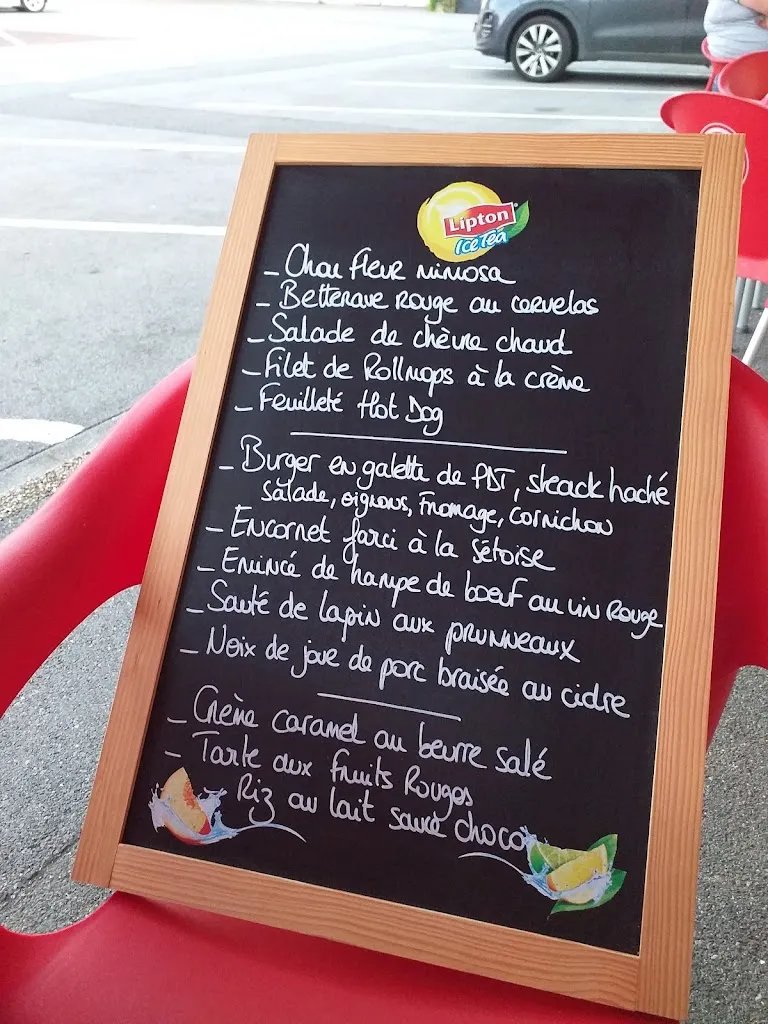 Lipton
Ice Tea
- Chou fleur mimosa
- Betterave rouge au cervelas
- Salade de chèvre chaud
- Filet de Rollmops à la crème
- Feuilleté Hot Dog
- Burger en galette de PDT, steack haché
salade, oignons, Fromage, cornichon
- Encornet farci à la Sétoise
- Emincé de hampe de boeuf au vin Rouge
- Sauté de lapin aux prunneaux
- Noix de joue de porc braisée au cidre
- Crème caramel au beurre salé
- Tarte aux fruits Rouges
Riz au lait sauce choco